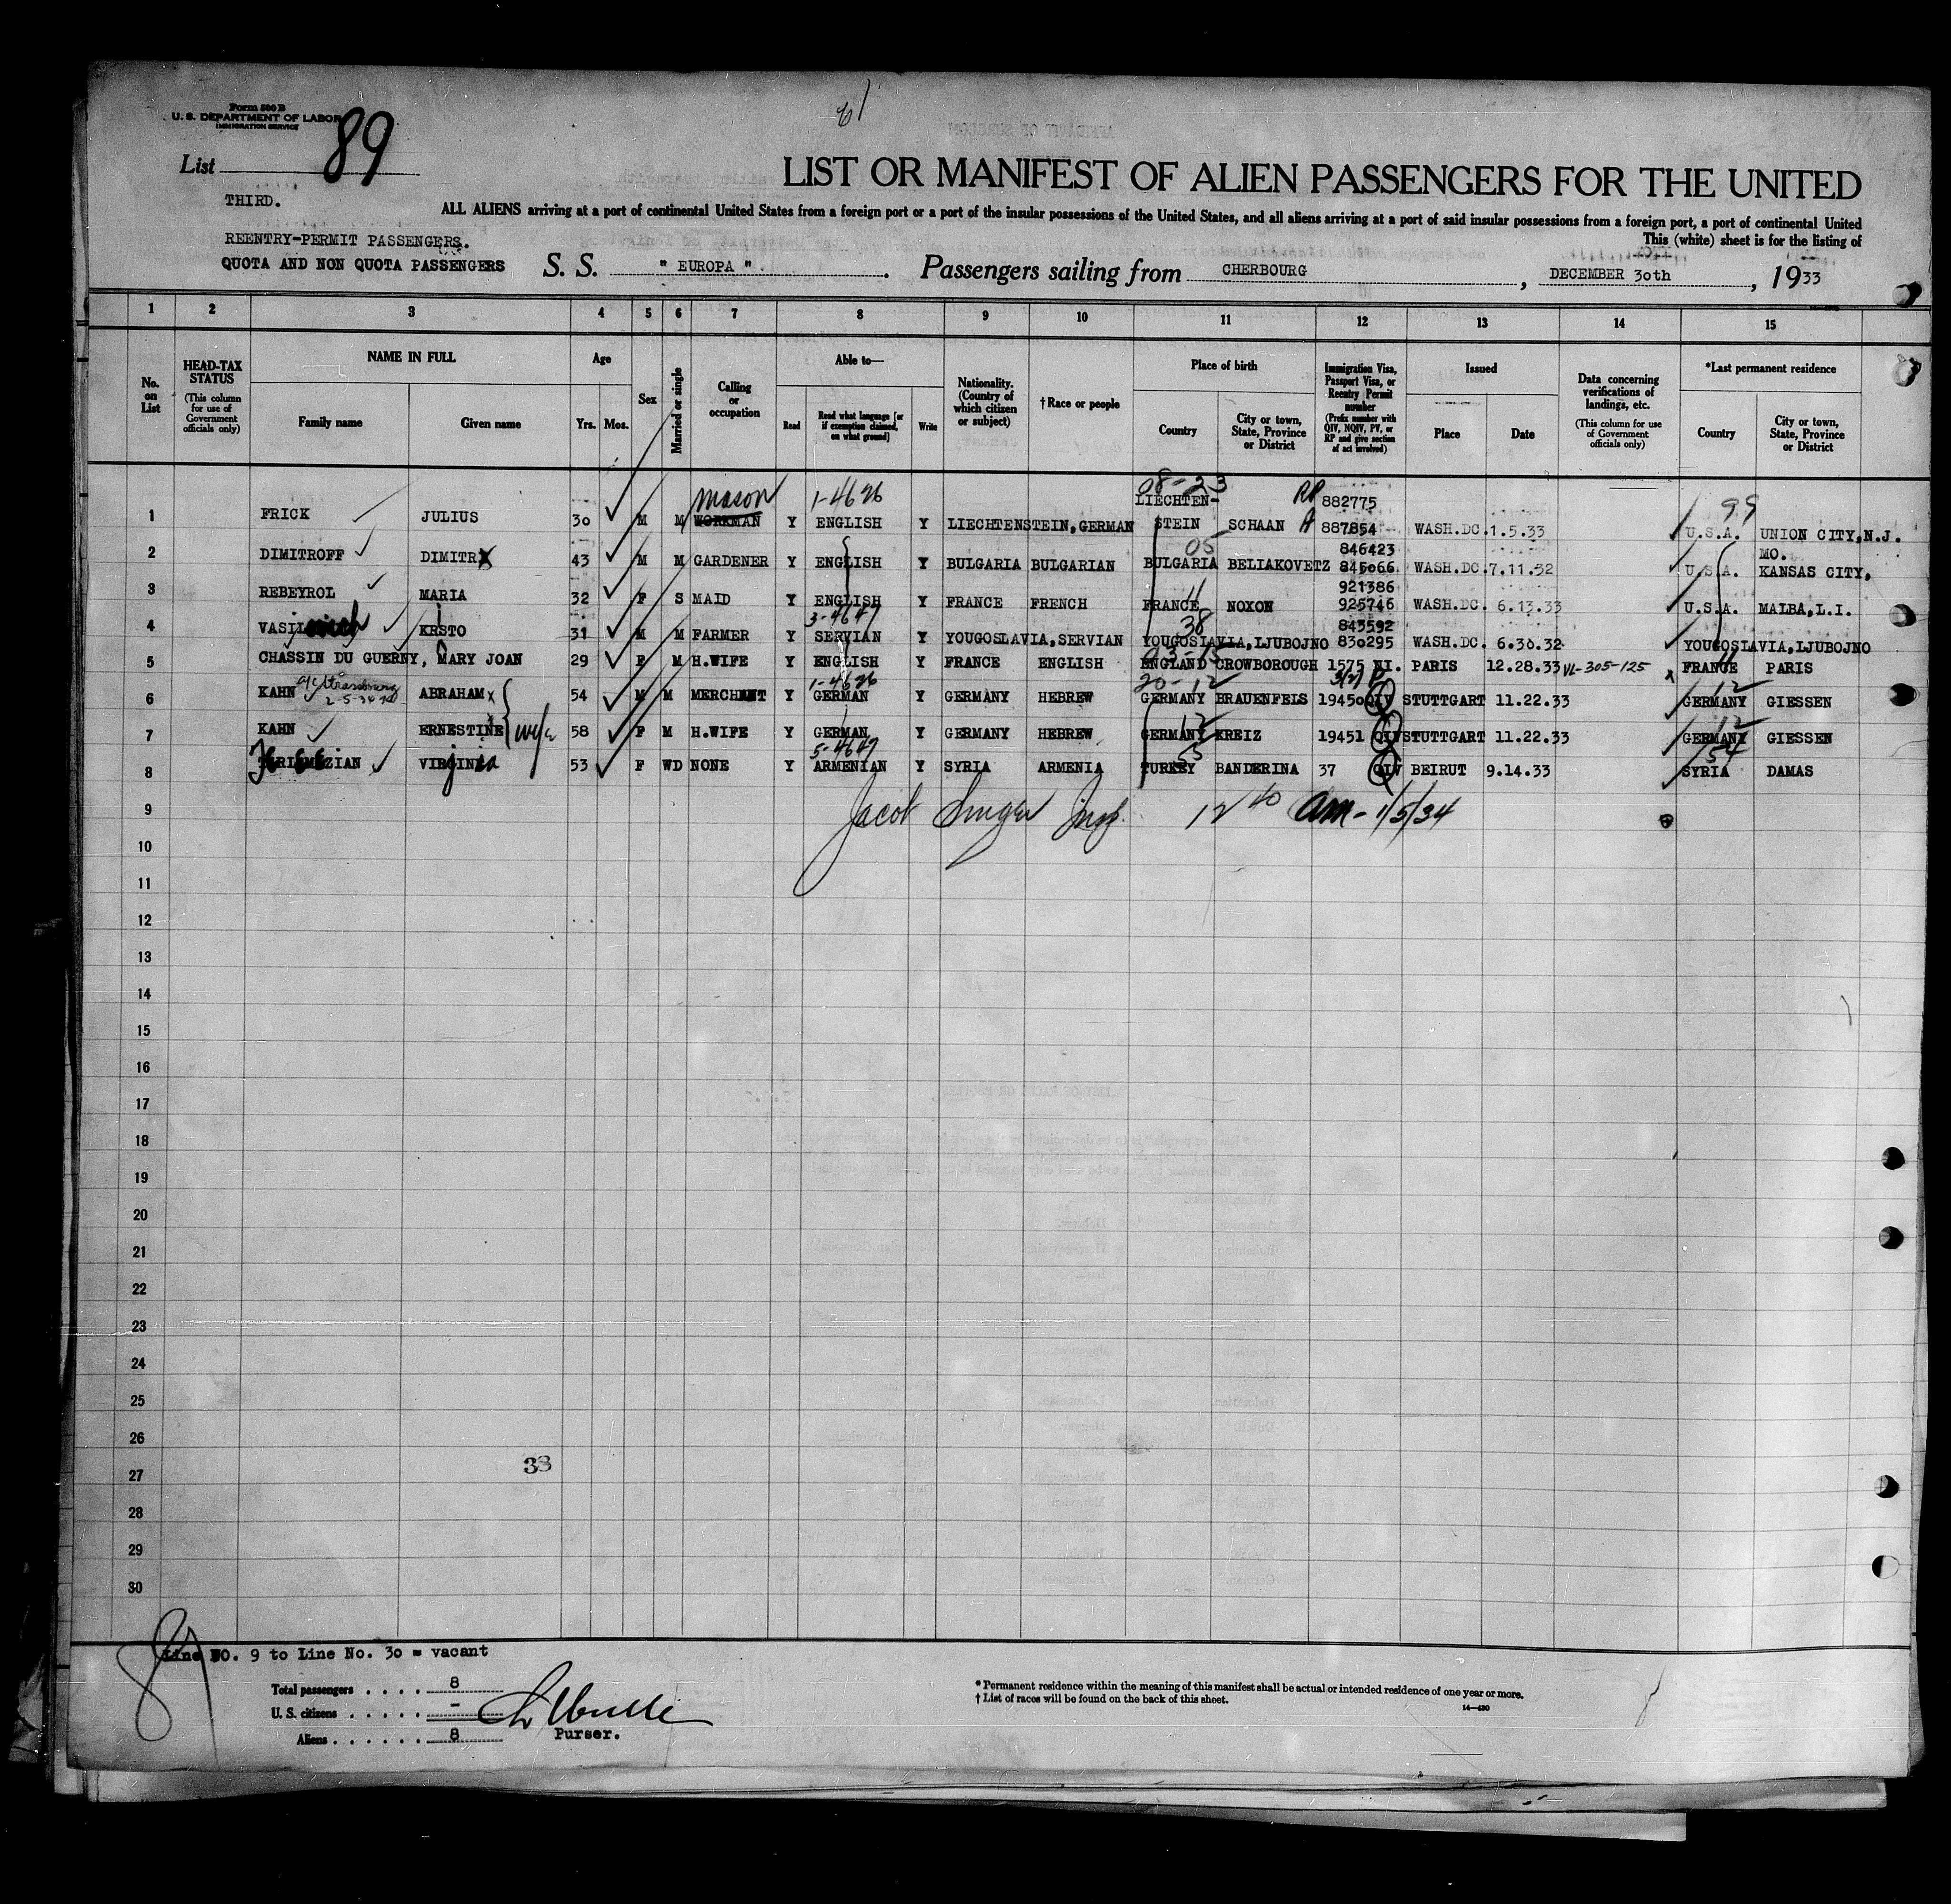 Form 500 B
U. S. DEPARTMENT OF LABOR
IMMIGRATION SERVICE
61
List 89
LIST OR MANIFEST OF ALIEN PASSENGERS FOR THE UNITED
THIRD.
ALL ALIENS arriving at a port of continental United States from a foreign port or a port of the insular possessions of the United States, and all aliens arriving at a port of said insular possessions from a foreign port, a port of continental United
REENTRY-PERMIT PASSENGERS.
This (white) sheet is for the listing of
QUOTA AND NON QUOTA PASSENGERS S. S. " EUROPA ". Passengers sailing from CHERBOURG, DECEMBER 30th, 1933
1 2 3 4 5 6 7 8 9 10 11 12 13 14 15
No. on List
HEAD-TAX STATUS (This column for use of Government officials only)
NAME IN FULL Family name Given name
Age Yrs. Mos.
Sex
Married or single
Calling or occupation
Able to— Read Read what language [or if exemption claimed, on what ground] Write
Nationality. (Country of which citizen or subject)
†Race or people
Place of birth Country City or town, State, Province or District
Immigration Visa, Passport Visa, or Reentry Permit number (Prefix number with QIV, NQIV, PV, or RP and give section of act involved)
Issued Place Date
Data concerning verifications of landings, etc. (This column for use of Government officials only)
*Last permanent residence Country City or town, State, Province or District
mason 1-4626 08-23 LIECHTEN- RP 882775 99
1 FRICK JULIUS 30 M M WORKMAN Y ENGLISH Y LIECHTENSTEIN, GERMAN STEIN SCHAAN 887854 WASH.DC. 1.5.33 U.S.A. UNION CITY, N.J.
05 846423 MO.
2 DIMITROFF DIMITR 43 M M GARDENER Y ENGLISH Y BULGARIA BULGARIAN BULGARIA BELIAKOVETZ 845066 WASH.DC. 7.11.32 U.S.A. KANSAS CITY,
11 921386
3 REBEYROL MARIA 32 F S MAID Y ENGLISH Y FRANCE FRENCH FRANCE NOXON 925746 WASH.DC. 6.13.33 U.S.A. MALBA, L.I.
3-4647 38 843592
4 VASIL KRSTO 31 M M FARMER Y SERVIAN Y YOUGOSLAVIA, SERVIAN YOUGOSLAVIA, LJUBOJNO 830295 WASH.DC. 6.30.32 YOUGOSLAVIA, LJUBOJNO
03-15 11
5 CHASSIN DU GUERNY, MARY JOAN 29 F M H.WIFE Y ENGLISH Y FRANCE ENGLISH ENGLAND CROWBOROUGH 1575 NI. PARIS 12.28.33 VL-305-125 FRANCE PARIS
2-5-34 1-4626 20-12 12
6 KAHN ABRAHAM 54 M M MERCHANT Y GERMAN Y GERMANY HEBREW GERMANY BRAUENFELS 19450 QIV STUTTGART 11.22.33 GERMANY GIESSEN
wife 12 12
7 KAHN ERNESTINE 58 F M H.WIFE Y GERMAN Y GERMANY HEBREW GERMANY KREIZ 19451 QIV STUTTGART 11.22.33 GERMANY GIESSEN
5-4647 55 54
8 VIRGINIA 53 F WD NONE Y ARMENIAN Y SYRIA ARMENIA TURKEY BANDERINA 37 QIV BEIRUT 9.14.33 SYRIA DAMAS
9 Jacob Singer Insp. 12 40 am - 1/5/34
10
11
12
13
14
15
16
17
18
19
20
21
22
23
24
25
26
27
33
28
29
30
89
Line NO. 9 to Line No. 30 = vacant
Total passengers . . . . 8
U. S. citizens . . . . . –
Aliens . . . . . . 8
Purser.
* Permanent residence within the meaning of this manifest shall be actual or intended residence of one year or more.
† List of races will be found on the back of this sheet.
14—430